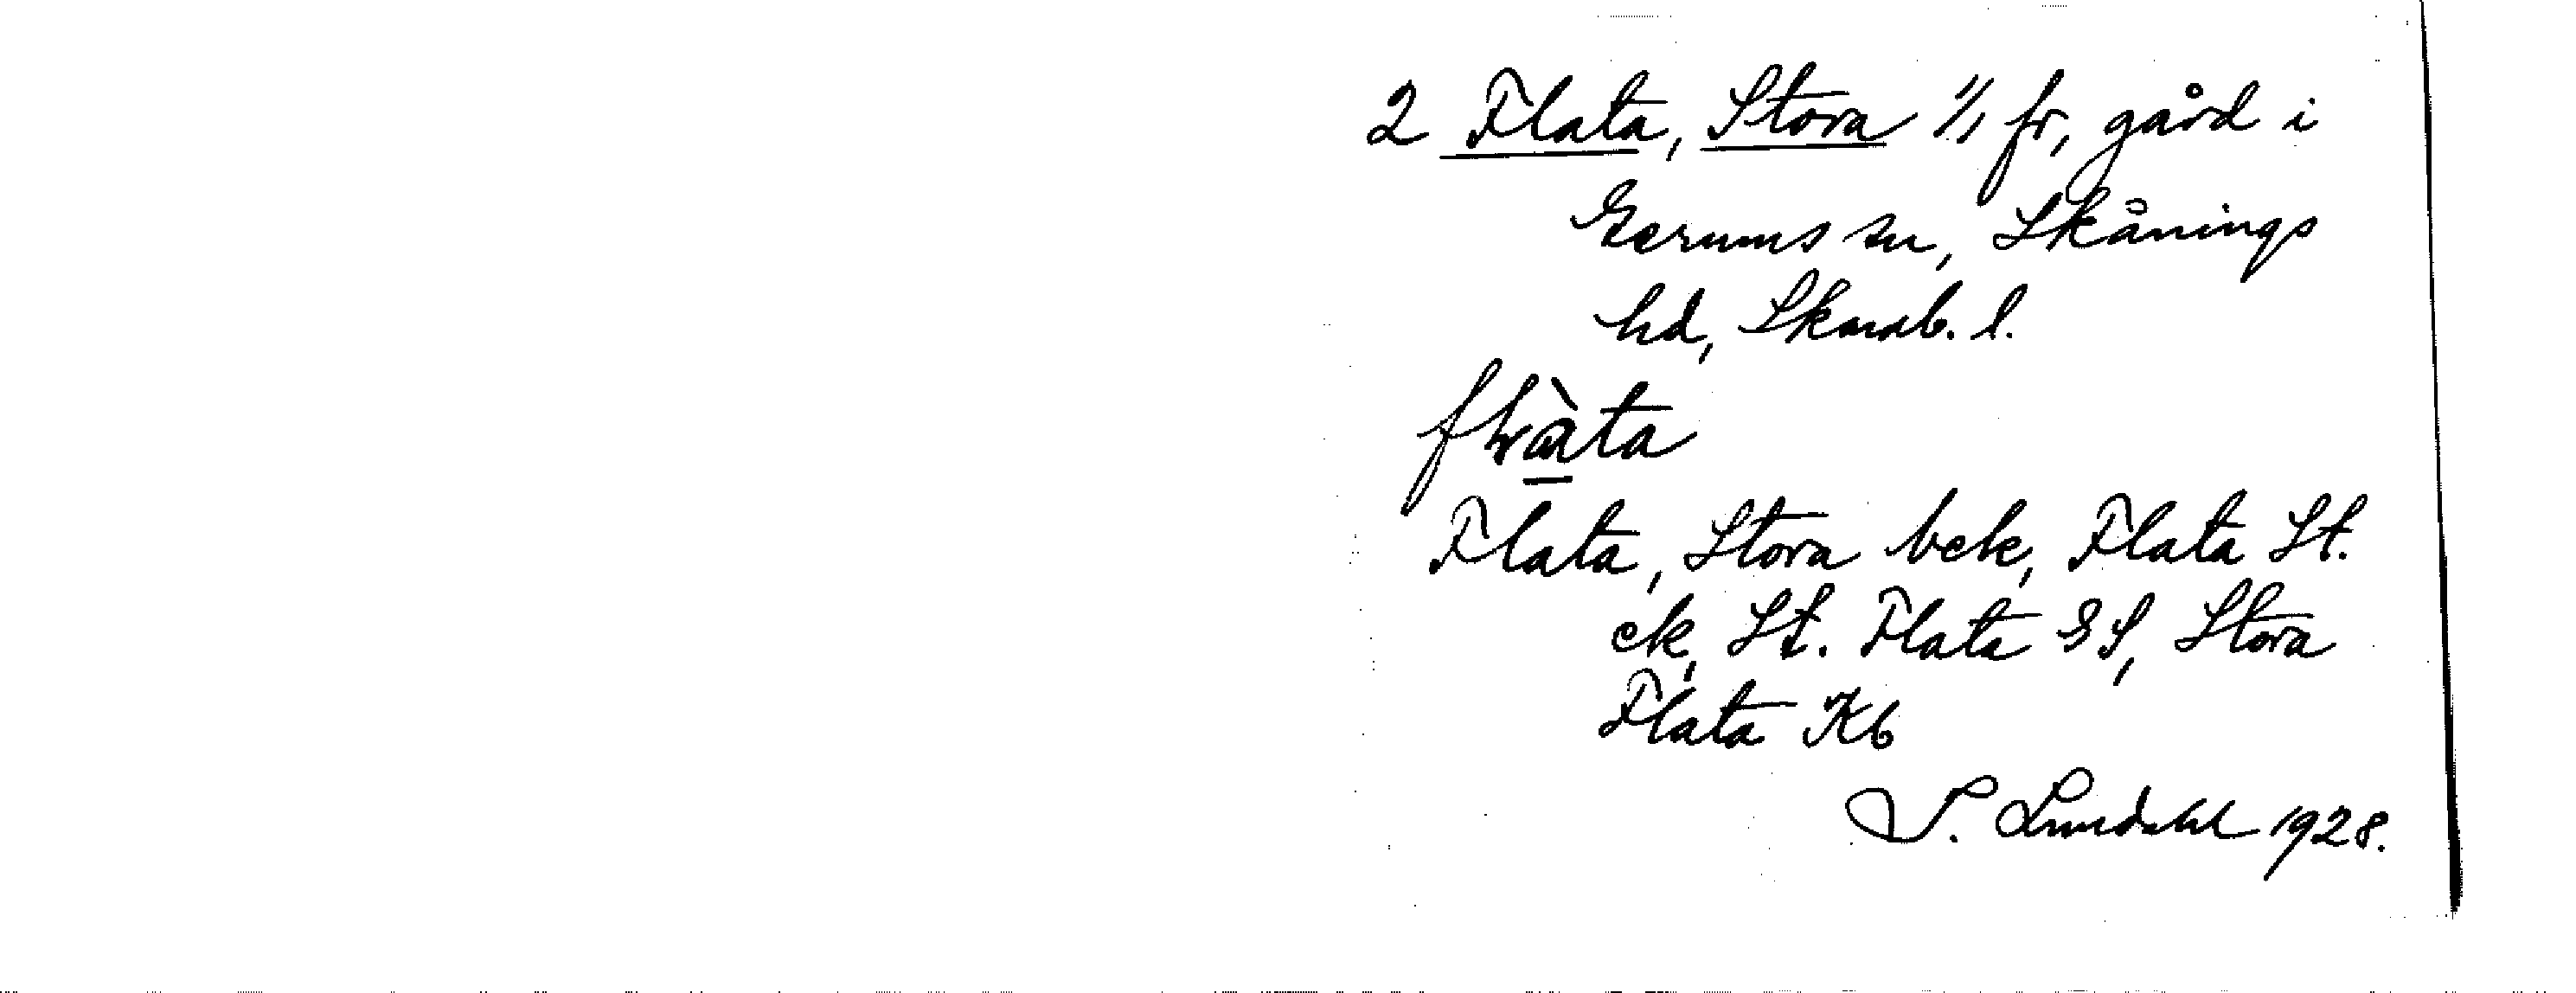 2 Flata, Stora 1/1 fr, gård i
Gerums sn, Skånings
hd, Skarab. l.
Flata, Stora bek, Flata St.
ek, St. Flata GS, Stora
Flata Kb
S. Lundahl 1928.